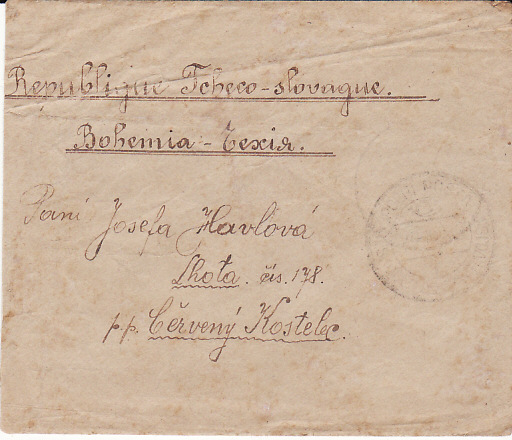 Republique Tcheco-slovaque.
Bohemia - Чехія.
Paní Josefa Havlová
Lhota. čís. 178.
p.p. Červený Kostelec.